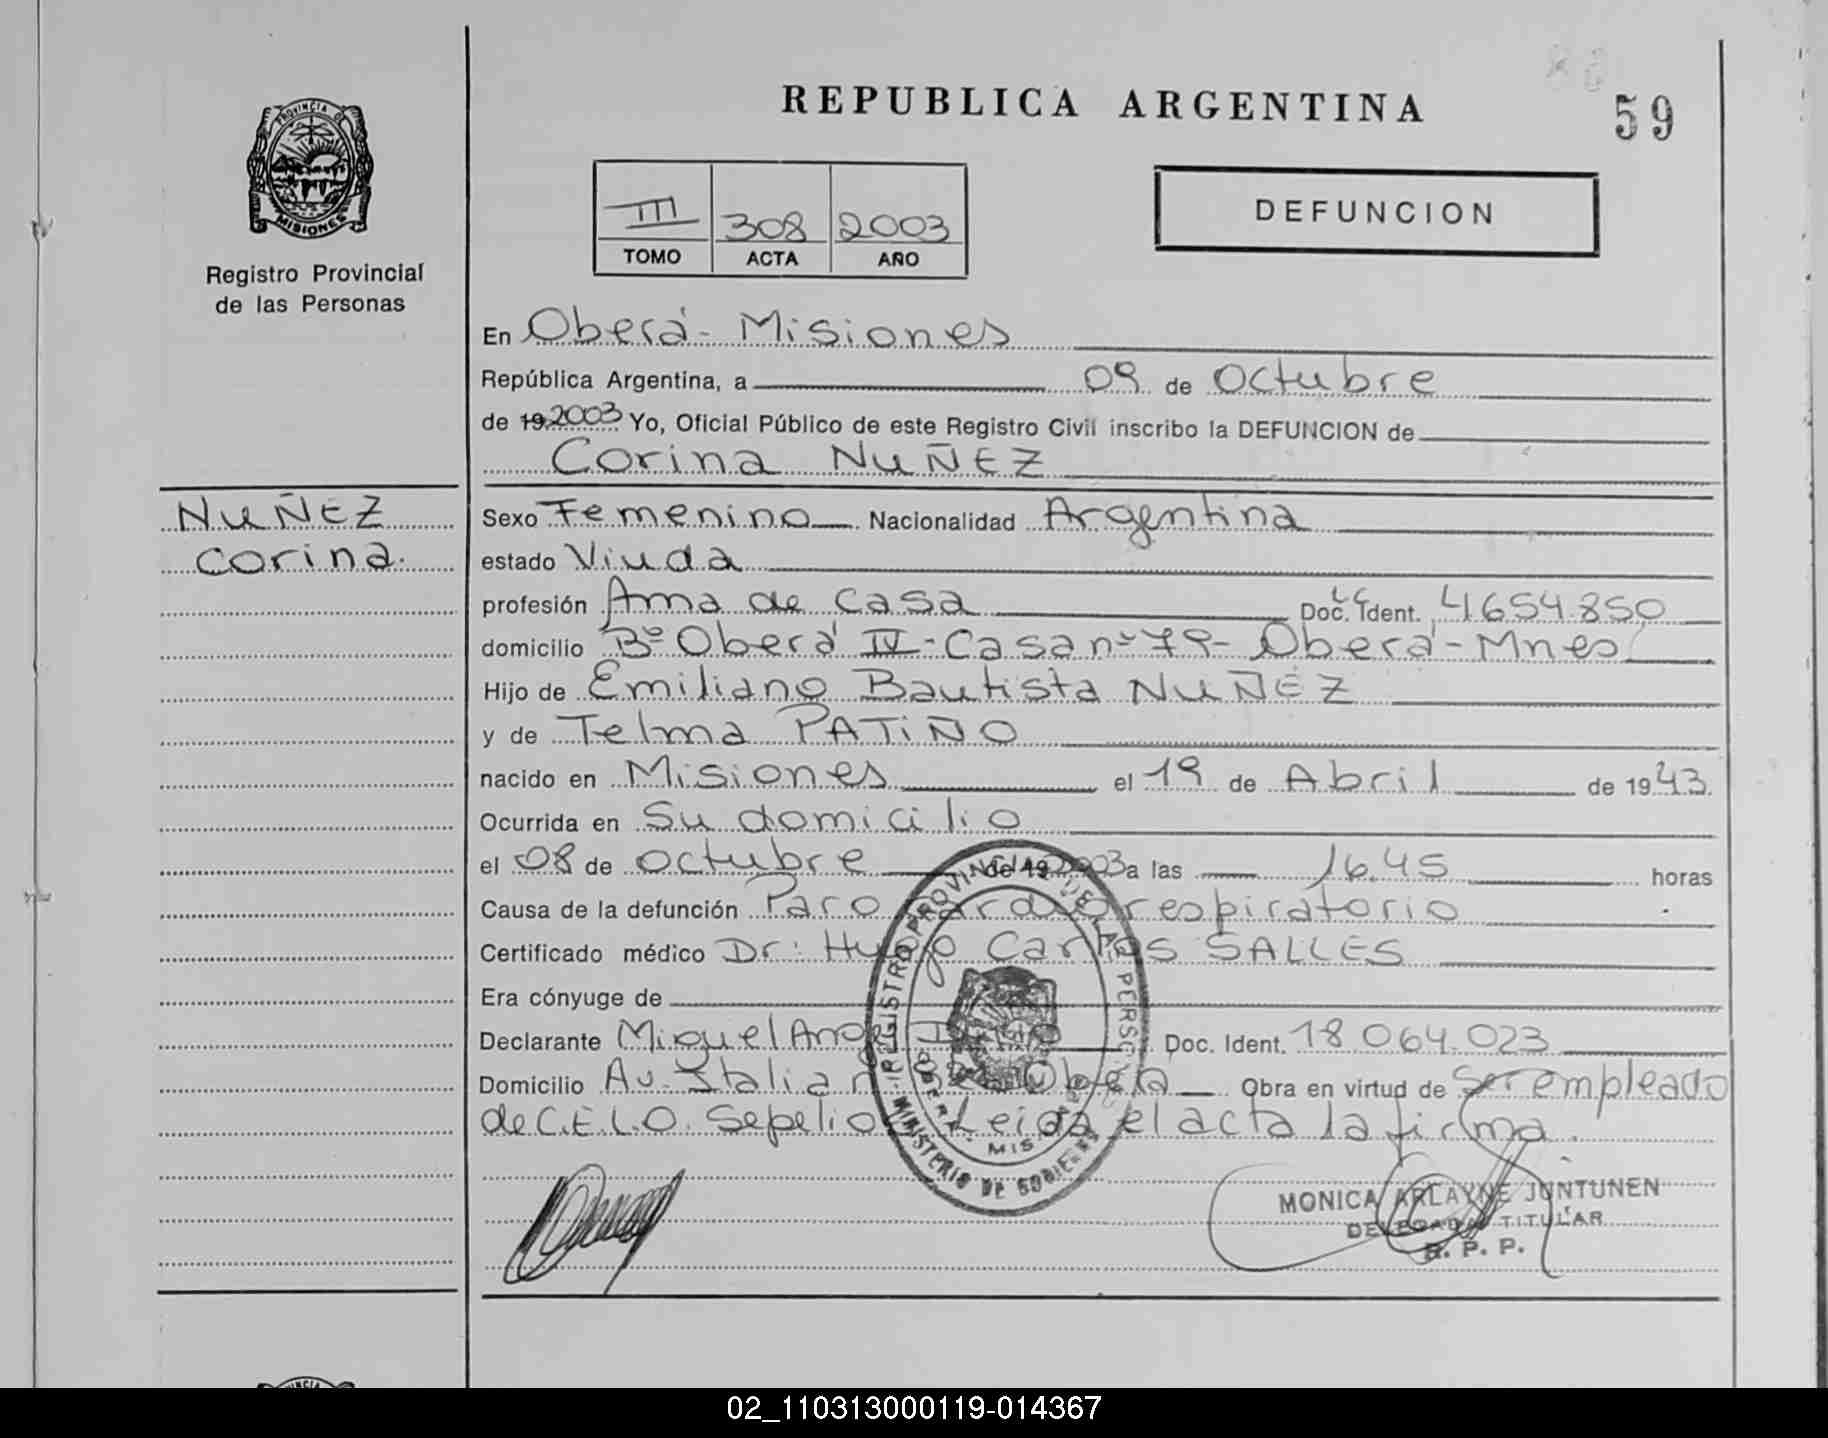 REPUBLICA ARGENTINA
59
PROVINCIA DE
MISIONES
Registro Provincial
de las Personas
III 308 2003
TOMO ACTA AÑO
DEFUNCION
En Oberá - Misiones
República Argentina, a 09 de Octubre
de 19 2003 Yo, Oficial Público de este Registro Civil inscribo la DEFUNCION de
Corina NUÑEZ
NUÑEZ
Corina.
Sexo Femenino Nacionalidad Argentina
estado Viuda
profesión Ama de casa Doc. Ident. LC 4.654.850
domicilio Bº Oberá IV - Casa nº 79 - Oberá - Mnes
Hijo de Emiliano Bautista NUÑEZ
y de Telma PATIÑO
nacido en Misiones el 19 de Abril de 1943.
Ocurrida en Su domicilio
el 08 de octubre de 19 2003 a las 16.45 horas
Causa de la defunción Paro cardiorespiratorio
Certificado médico Dr: Hugo Carlos SALLES
Era cónyuge de
Declarante Miguel Angel Doc. Ident. 18.064.023
Domicilio Av. Italia nº Oberá Obra en virtud de Ser empleado
de C.E.L.O. Sepelio Leida el acta la firma.
REGISTRO PROVINCIAL DE LAS PERSONAS
MINISTERIO DE GOBIERNO
OBERA MIS
MONICA ARLAYNE JUNTUNEN
DELEGADA TITULAR
R. P. P.
02_110313000119-014367